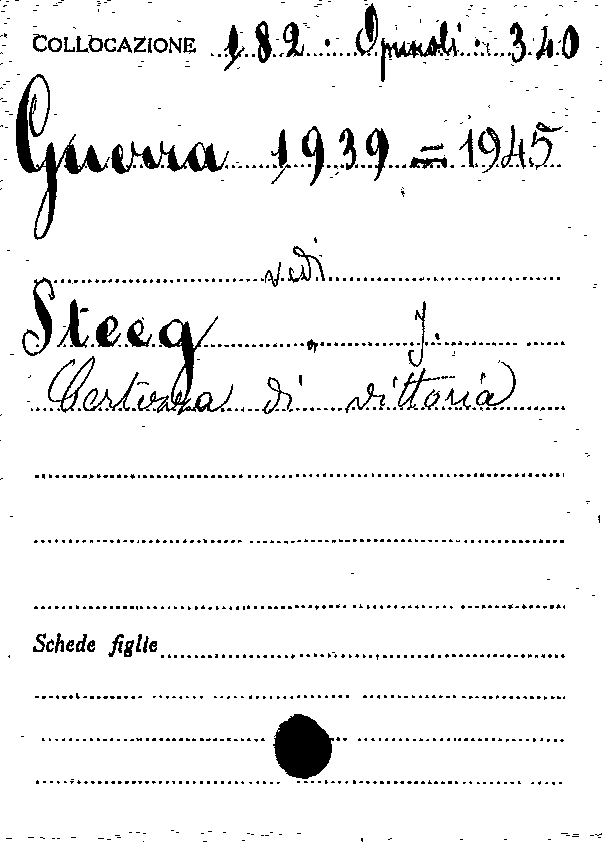 COLLOCAZIONE 182. Opuscoli. 340
Guerra 1939=1945
vedi
Steeg, J.
Certezza di vittoria
Schede figlie